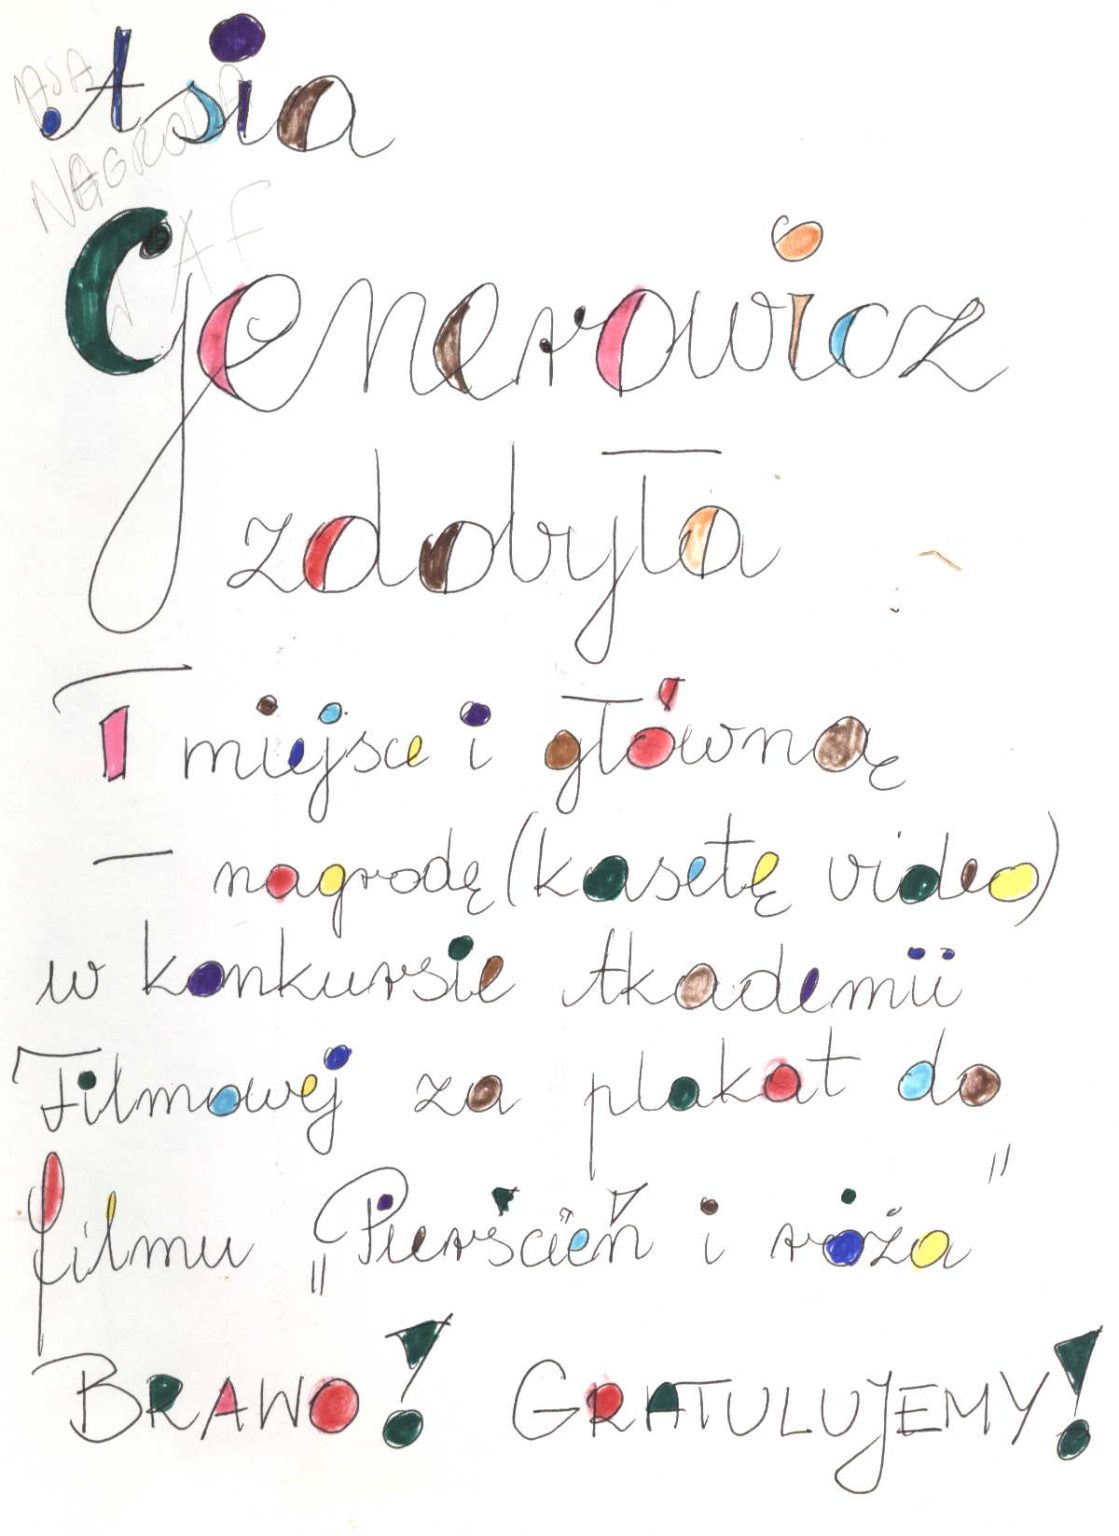 Asia
Generowicz
zdobyła
I miejsce i główną
— nagrodę (kasetę video)
w konkursie Akademii
Filmowej za plakat do
filmu „Pierścień i róża”
BRAWO! GRATULUJEMY!
ASIA
NAGRODA
W AF